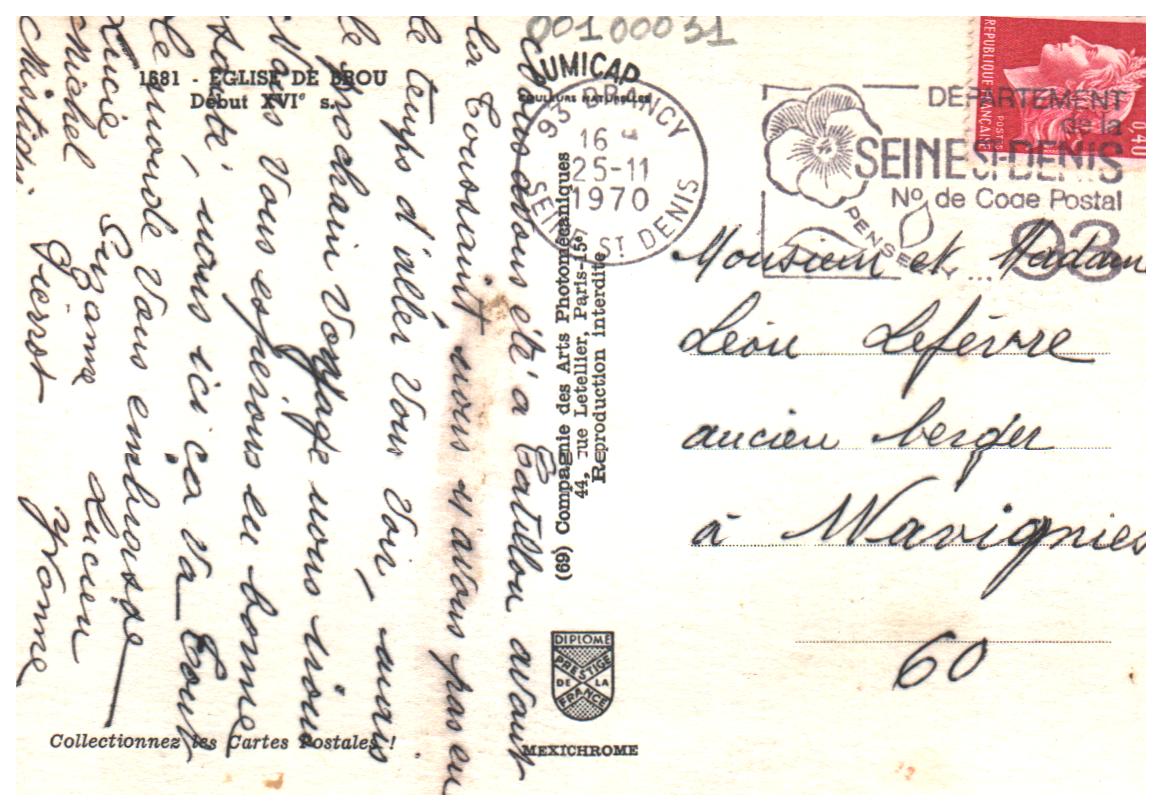 00100031
LUMICAP
COULEURS NATURELLES
1681 - EGLISE DE BROU
Début XVIᵉ s.
nous avons été à Catillon avant
la Toussaint nous n'avons pas eu
le temps d'aller vous voir, mais
le prochain voyage nous irons
vous vous espérons en bonne
santé, nous ici ça va tout
le monde vous embrasse
Lucie Suzanne Lucien
Michel Pierrot Yvonne
Christian
Collectionnez les Cartes Postales !
(69) Compagnie des Arts Photomécaniques
44, rue Letellier, Paris-15ᵉ
Reproduction interdite
DIPLOME
PRESTIGE
DE LA
FRANCE
MEXICHROME
93 DRANCY
16 H
25-11
1970
SEINE ST DENIS
DEPARTEMENT
de la
SEINE ST-DENIS
N° de Code Postal
PENSEZ Y ... 93
REPUBLIQUE FRANÇAISE
POSTES
0,40
Monsieur et Madam
Léon Lefévre
ancien berger
à Wavignies
60